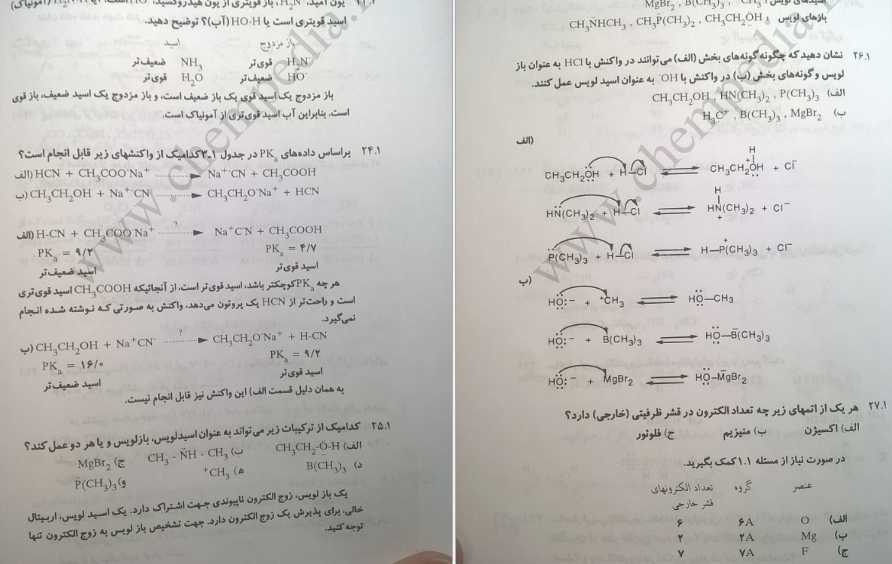 اسید قویتری است یا HO-H (آب)؟ توضیح دهید.
باز مزدوج اسید
H₂N⁻ قوی‌تر NH₃ ضعیف‌تر
HO⁻ ضعیف‌تر H₂O قوی‌تر
باز مزدوج یک اسید قوی یک باز ضعیف است، و باز مزدوج یک اسید ضعیف، باز قوی
است. بنابراین آب اسید قوی‌تری از آمونیاک است.
۲۴.۱ براساس داده‌های PKₐ در جدول ۱-۳ کدامیک از واکنشهای زیر قابل انجام است؟
الف) HCN + CH₃COO⁻Na⁺ → Na⁺⁻CN + CH₃COOH
ب) CH₃CH₂OH + Na⁺⁻CN → CH₃CH₂O⁻Na⁺ + HCN
الف) H-CN + CH₃COO⁻Na⁺ ? → Na⁺C⁻N + CH₃COOH
PKₐ = ۹/۲ PKₐ = ۴/۷
اسید ضعیف‌تر اسید قوی‌تر
هر چه PKₐ کوچکتر باشد، اسید قوی‌تر است، از آنجائیکه CH₃COOH اسید قوی‌تری
است و راحت‌تر از HCN یک پروتون می‌دهد، واکنش به صورتی که نوشته شده انجام
نمی‌گیرد.
ب) CH₃CH₂OH + Na⁺CN⁻ ? → CH₃CH₂O⁻Na⁺ + H-CN
PKₐ = ۱۶/۰ PKₐ = ۹/۲
اسید ضعیف‌تر اسید قوی‌تر
به همان دلیل قسمت الف) این واکنش نیز قابل انجام نیست.
۲۵.۱ کدامیک از ترکیبات زیر می‌تواند به عنوان اسیدلویس، بازلویس و یا هر دو عمل کند؟
الف) CH₃CH₂-O-H ب) CH₃ - N̈H - CH₃ ج) MgBr₂
د) B(CH₃)₃ ه) ⁺CH₃ و) P̈(CH₃)₃
یک باز لویس، زوج الکترون ناپیوندی جهت اشتراک دارد. یک اسید لویس، اربیتال
خالی، برای پذیرش یک زوج الکترون دارد. جهت تشخیص باز لویس به زوج الکترون تنها
توجه کنید.
بازهای لویس CH₃N̈HCH₃ , CH₃P̈(CH₃)₂ , CH₃CH₂ÖH
۲۶.۱ نشان دهید که چگونه گونه‌های بخش (الف) می‌توانند در واکنش با HCl به عنوان باز
لویس و گونه‌های بخش (ب) در واکنش با OH⁻ به عنوان اسید لویس عمل کنند.
الف) CH₃CH₂OH , HN(CH₃)₂ , P(CH₃)₃
ب) H₃C⁺ , B(CH₃)₃ , MgBr₂
الف)
CH₃CH₂ÖH + H—Cl ⇌ CH₃CH₂ÖH + Cl⁻
H
+
HN̈(CH₃)₂ + H—Cl ⇌ HN(CH₃)₂ + Cl⁻
H
+
P̈(CH₃)₃ + H—Cl ⇌ H—P⁺(CH₃)₃ + Cl⁻
ب)
HÖ:⁻ + ⁺CH₃ ⇌ HÖ—CH₃
HÖ:⁻ + B(CH₃)₃ ⇌ HÖ—B⁻(CH₃)₃
HÖ:⁻ + MgBr₂ ⇌ HÖ—M⁻gBr₂
۲۷.۱ هر یک از اتمهای زیر چه تعداد الکترون در قشر ظرفیتی (خارجی) دارد؟
الف) اکسیژن ب) منیزیم ج) فلوئور
در صورت نیاز از مسئله ۱.۱ کمک بگیرید.
عنصر گروه تعداد الکترونهای
قشر خارجی
الف) O ۶A ۶
ب) Mg ۲A ۲
ج) F ۷A ۷